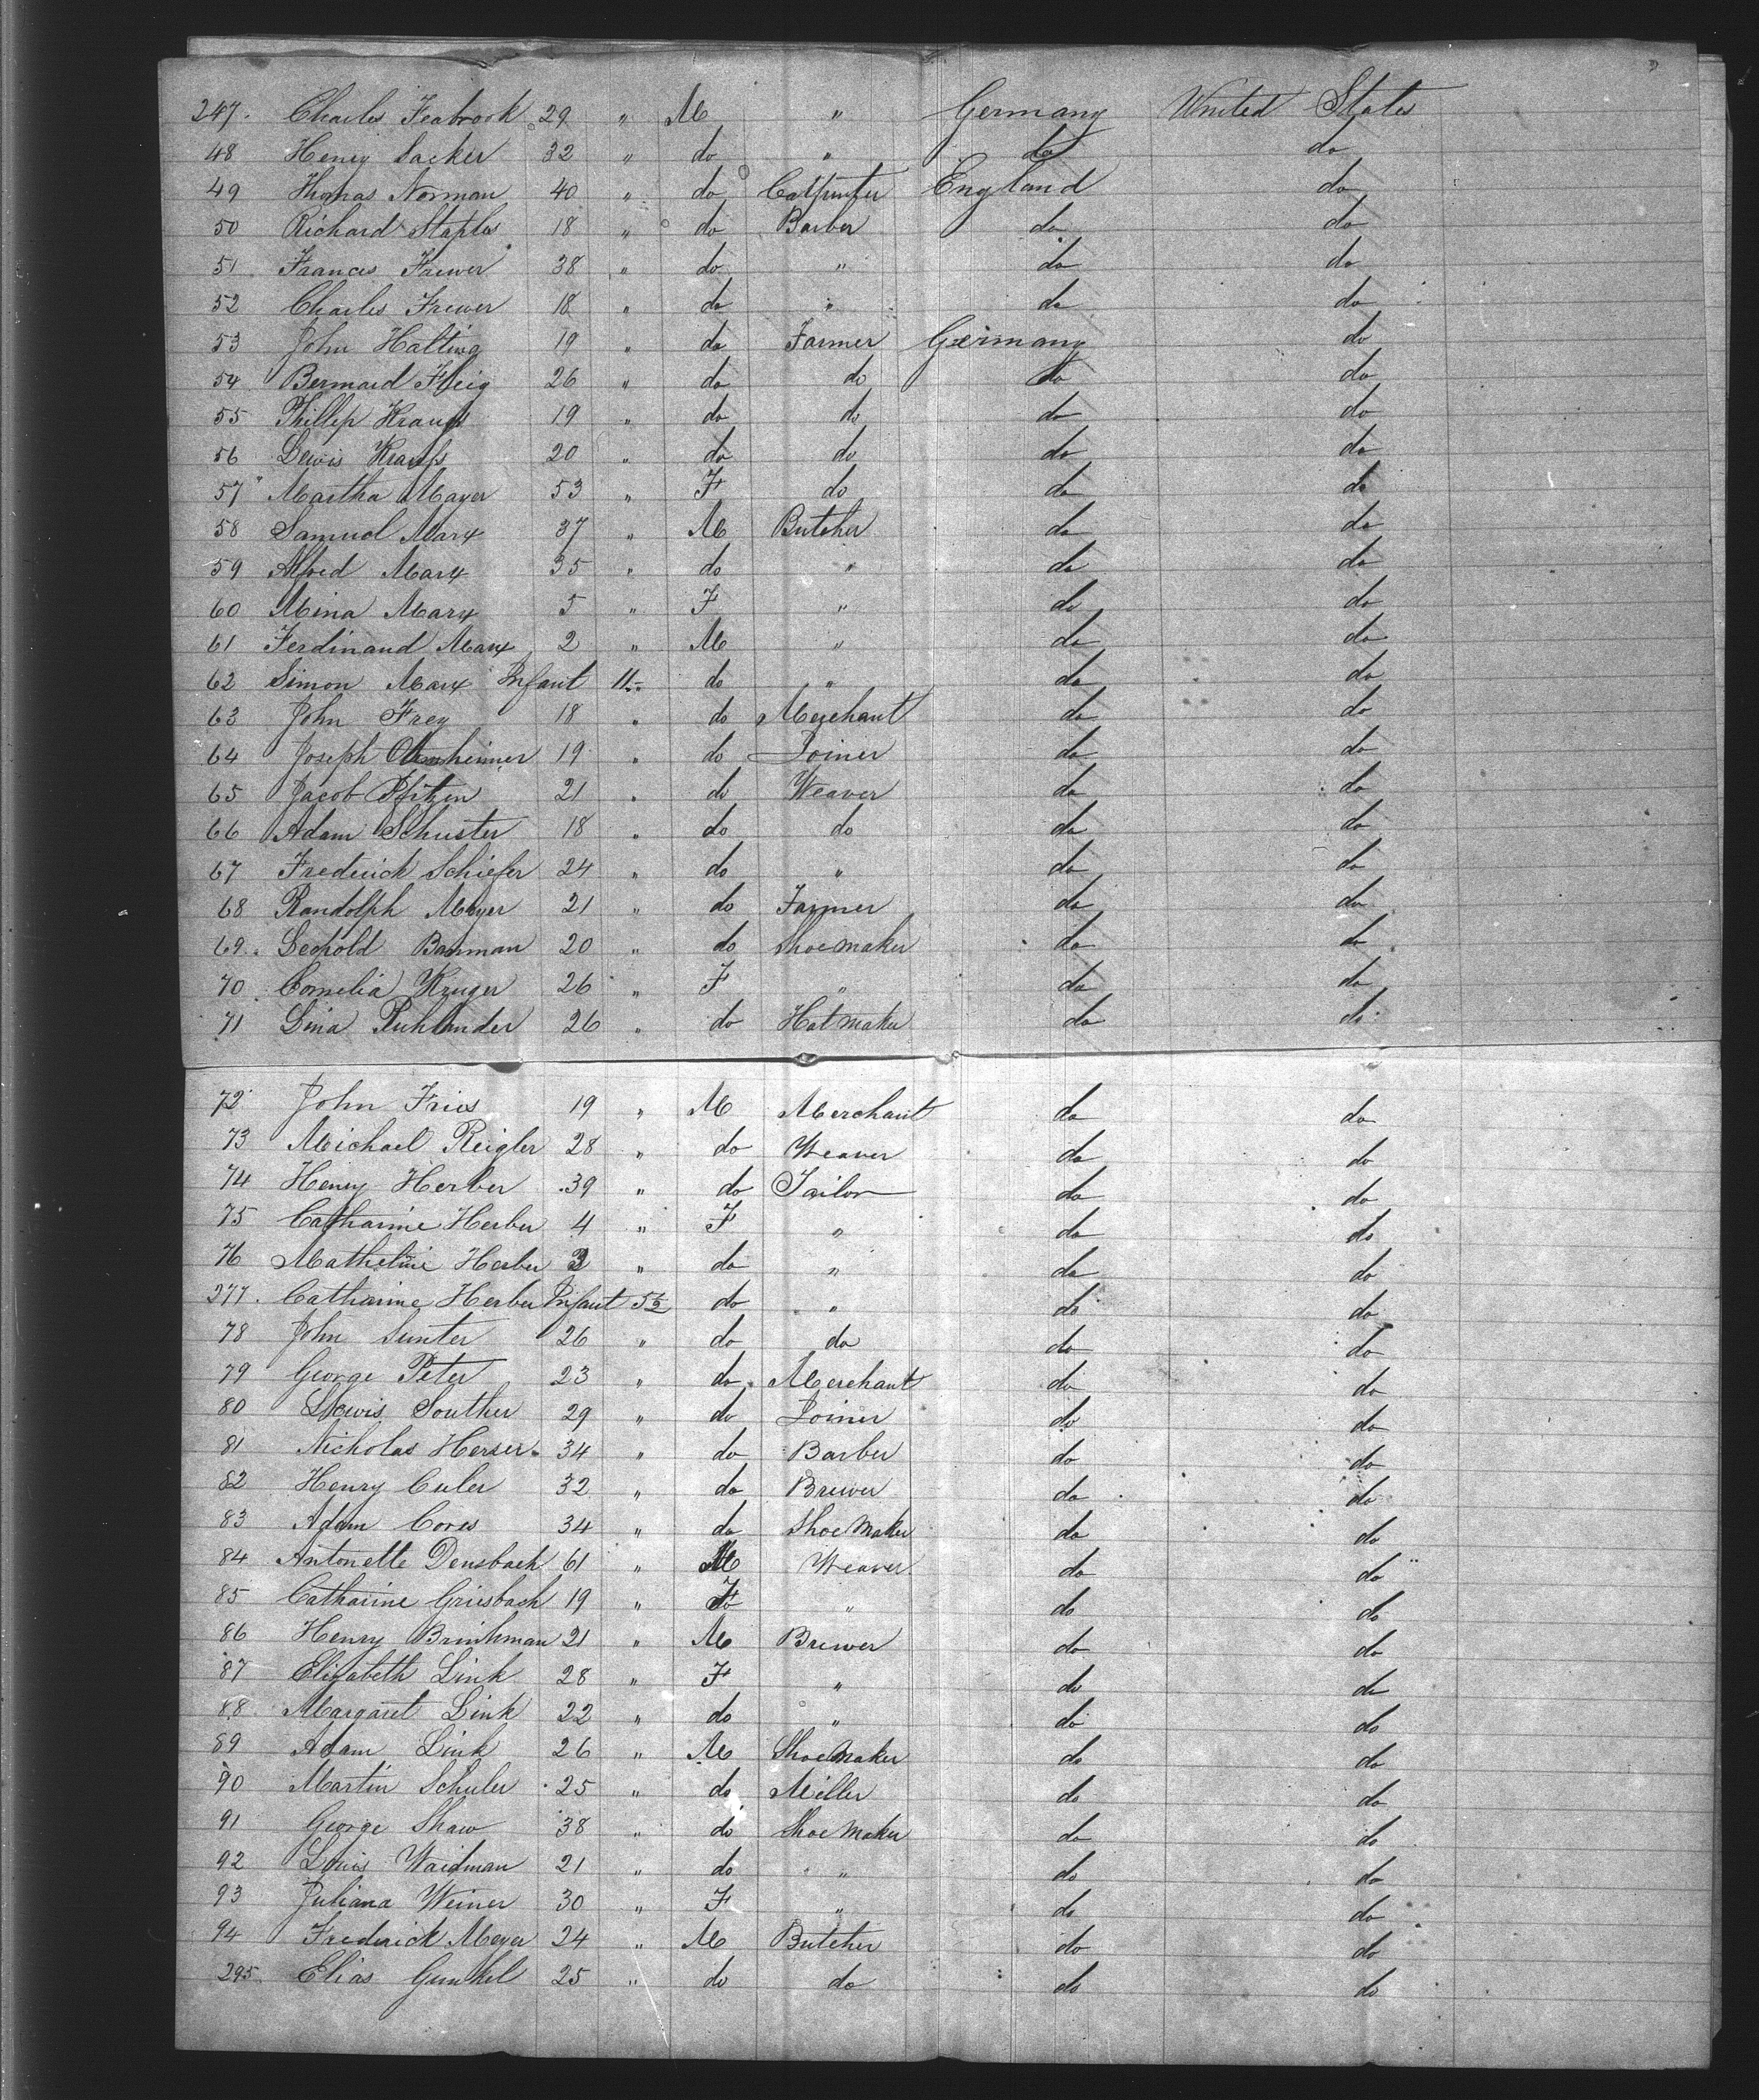 247. Charles Feabrook 29 " M " Germany United States
48 Henry Sacker 32 " do " do do
49 Thomas Norman 40 " do Carpenter England do
50 Richard Staples 18 " do Barber do do
51 Frances Frewer 38 " do " do do
52 Charles Frewer 18 " do " do do
53 John Halting 19 " do Farmer Germany do
54 Bernard Fleig 26 " do do do do
55 Phillip Kraups 19 " do do do do
56 Lewis Kraups 20 " do do do do
57 Martha Mayer 53 " F do do do
58 Samuel Marx 37 " M Butcher do do
59 Alfred Marx 35 " do " do do
60 Mina Marx 5 " F " do do
61 Ferdinand Marx 2 " M " do do
62 Simon Marx Infant 11 " do " do do
63 John Frey 18 " do Merchant do do
64 Joseph 19 " do Joiner do do
65 Jacob Pfitzen 21 " do Weaver do do
66 Adam Schuster 18 " do do do do
67 Frederick Schiefer 24 " do " do do
68 Randolph Meyer 21 " do Farmer do do
69. Leopold Banman 20 " do Shoemaker do do
70 Cornelia Kruger 26 " F " do do
71 Lina Ruhlander 26 " do Hatmaker do do
72 John Fries 19 " M Merchant do do
73 Michael Reigler 28 " do Weaver do do
74 Henry Herber 39 " do Tailor do do
75 Catharine Herber 4 " F " do do
76 Matheline Herber 3 " do " do do
277. Catharine Herber Infant 5½ do " do do
78 John Sunter 26 " do do do do
79 George Peter 23 " do Merchant do do
80 Lewis Souther 29 " do Joiner do do
81 Nicholas Herser 34 " do Barber do do
82 Henry Culer 32 " do Brewer do do
83 Adam Cores 34 " do Shoemaker do do
84 Antonette Densbach 61 " M Weaver do do
85 Catharine Griesbach 19 " F " do do
86 Henry Brinkman 21 " M Brewer do do
87 Elizabeth Link 28 " F " do do
88 Margaret Link 22 " do " do do
89 Adam Link 26 " M Shoemaker do do
90 Martin Schuler 25 " do Miller do do
91 George Shaw 38 " do Shoemaker do do
92 Louis Waidman 21 " do " do do
93 Juliana Weiner 30 " F " do do
94 Frederick Meyer 24 " M Butcher do do
295. Elias Gunkel 25 " do do do do